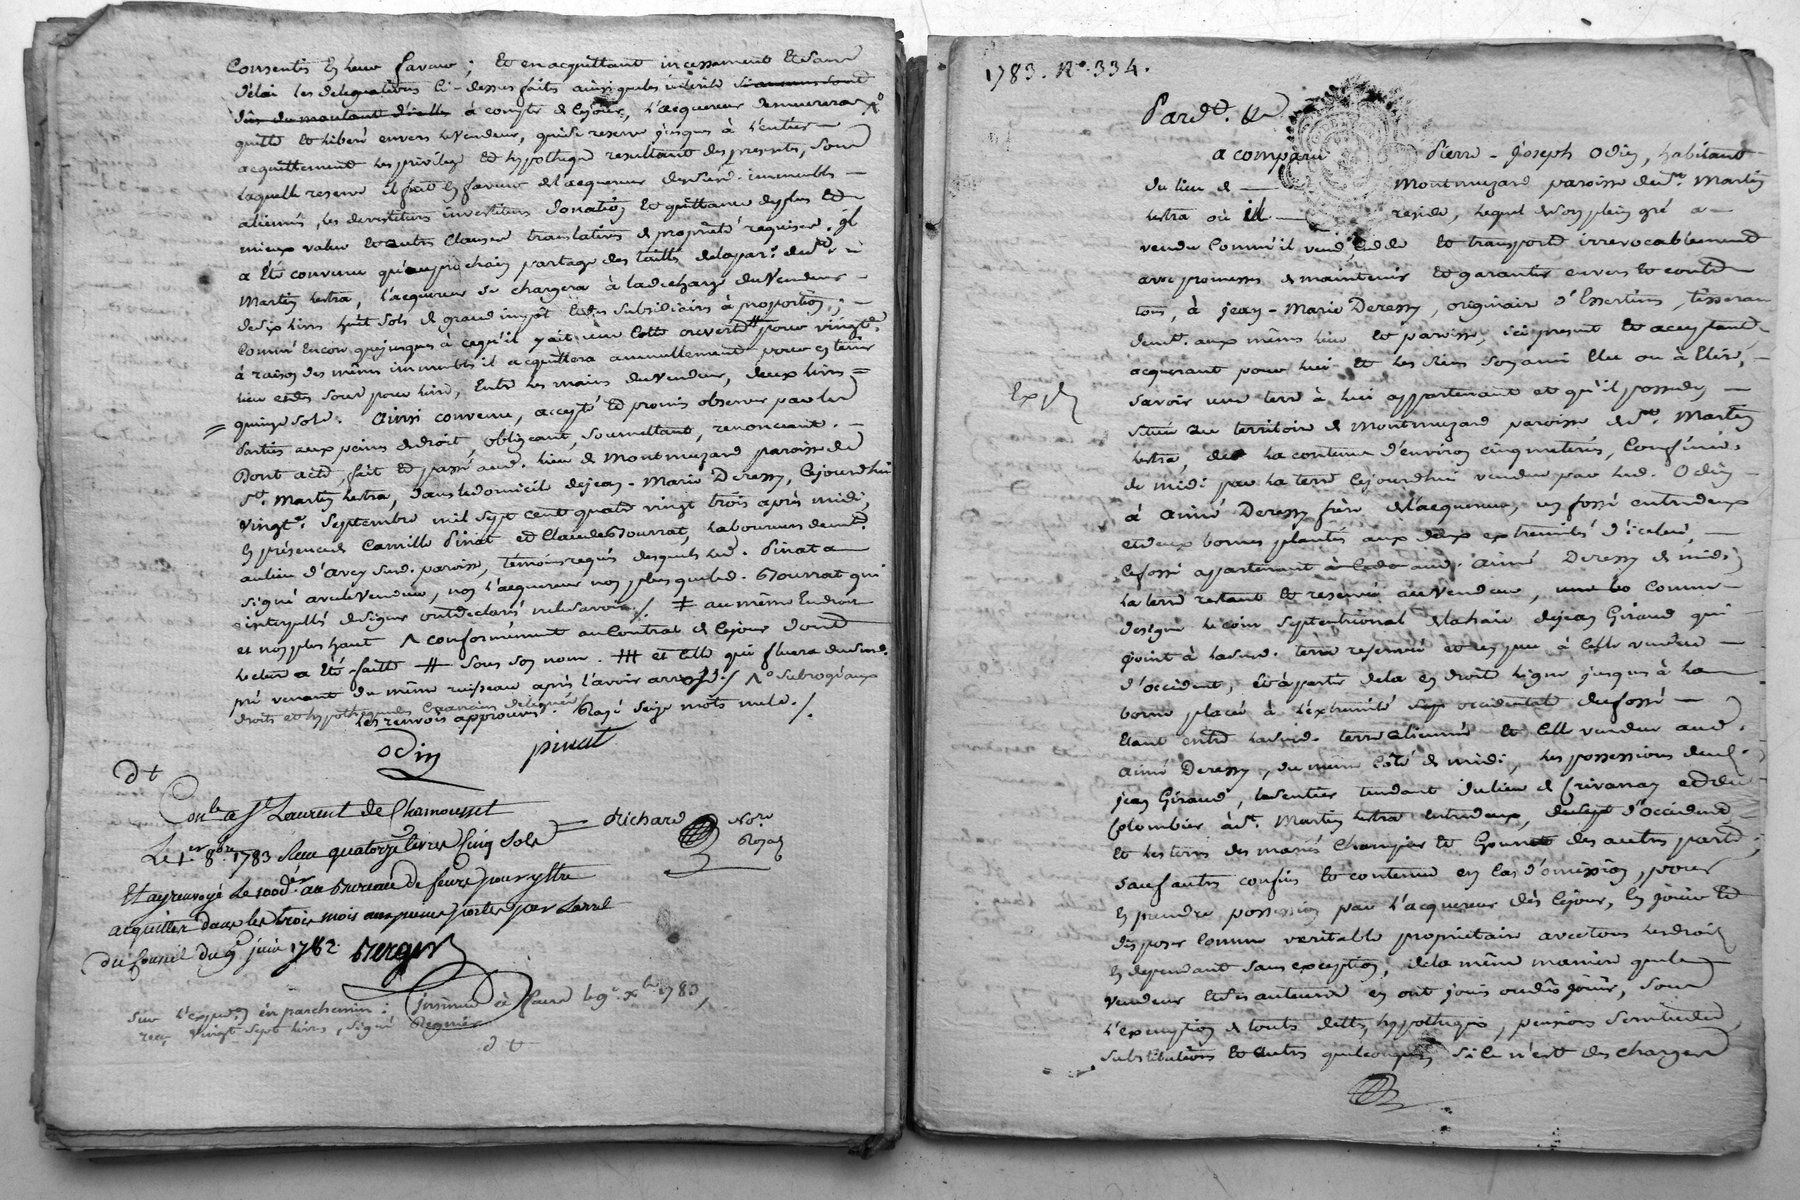 Consentis en leur faveur ; Et en acquittant incessament Et Sans
délai les delegations Ci-dessus faits ainsi que les interêts
à compte de Cejour, l'acquereur demeurera
quitte Et liberé envers le Vendeur, qui Se reserve jusques à l'entier
acquittement les privilege Et hypotheque resultant des presents, Sous
laquelle reserve il fait en faveur de l'acquereur desdits immeubles
aliennés, les devestiture investiture donation Et quittance de plus Et
mieux value Et autres Clauses translatives de propriété requises. Il
a été convenu qu'au prochain partage des tailles de la par. de St.
Martin lestra, l'acquereur Se chargera à la décharge du Vendeur
de six livres huit Sols de grand impôt Et des Subsidiaires à proportion ;
Comm' Encore que jusques à ce qu'il y ait
à raison des mêmes immeubles il acquittera annuellement
entre les mains du Vendeur, deux livres
quinze Sols. Ainsi convenu, accepté Et promis observer par les
Parties aux peines de droit, obligeant, Soumettant, renonceant.
Dont acte, fait Et passé aud. lieu de Montmuzard paroisse de
St. Martin lestra, dans le domicile de jean-Marie Deressy, Cejourdhui
Vingt. Septembre mil Sept Cent quatre vingt trois après midi,
En présence de Camille Pinat Et Claude Bourrat, laboureurs demt.
au lieu d'Arcy Sud. paroisse, témoins requis desquels led. Pinat a
Signé avec le Vendeur, non l'acquereur non plus que led. Bourrat qui
interpellés de Signer ont declaré ne le Savoir ./. ++ au même Endroit
et non plus haut ^ conformément au Contrat de Cejour dont
lecture a Eté faitte # Sous Son nom. ### et Celle qui fluera du Surd.
pré venant du même ruisseau après l'avoir arrosé ./ ^o Subrogé aux
droits et hypotheques
Les renvois approuvés. Rayé Seize mots nuls. /.
Odin pinat
dt
Conlé a St Laurent de Chamousset
Le 1er 8bre 1783 Reçu quatorze livres Cinq Sols
Richard Nore Royal
Et ay renvoyé Le 100d.er au Bureau de feurs pour y être
acquitter dans les trois mois aux peines portées par Larrêt
du Conseil du 9 juin 1782. Berger
Sur l'expedon en parchemin : insinué à feurs le 9e. Xbre 1783
reçu Vingt Sept livres, Signé Regnier
dt
1783. No. 334.
Pard.t. &a
a comparu Pierre-Joseph Odin, habitant
du lieu de Montmuzard paroisse de St. Martin
lestra où il reside, lequel de Son plein gré a
vendu Comm'il vend, Cede Et transporte irrevocablement
avec promesses de maintenir Et garantir envers Et contre
tous, à jean-Marie Deressy, originaire d'Essertines, tisseran
demt. aux mêmes lieu et paroisse, ici present Et acceptant,
acquerant pour lui Et les Siens Son ami Elu ou à Elire,
Expé
Savoir une terre à lui appartenant et qu'il possede
Située au territoire de Montmuzard paroisse de St. Martin
lestra, de la contenue d'environ cinq meterés, Confinée
de midi par la terre Cejourdhui vendue par led. Odin
à Aimé Deressy frère de l'acquereur, un fossé entredeux
et deux bornes plantés aux deux extremités d'icelui,
Ce fossé appartenant aud. Aimé Deressy de midi
la terre restant Et reservée au Vendeur, comme
designe le coin Septentrional de la haie de jean Giraud qui
joint à lasusd. terre reservée et jusques à Celle vendue
d'occident, Et à partir de la en droite ligne jusques à la
borne placée à l'extremité occidentale du fossé
Etant entre lasusd. terre alienée Et Celle vendue aud.
Aimé Deressy, du même Côté de midi, les possessions dud.
jean Giraud, le Sentier tendant du lieu de Crivanay
Colombier à St. Martin lestra entredeux, d'occident
Et les terres des mariés Chanpier Et Gounet des autres parts ;
Sauf autres confins Et contenue en Cas d'omission, pour
En prendre possession par l'acquereur dès Cejour, En jouir Et
disposer Comme veritable proprietaire avec tous les droits
En dependant Sans exception, de la même maniere que le
Vendeur Et Ses auteurs en ont joui ou dûs jouir, Sous
l'exemption de touts dettes, hypotheques, pensions Servitudes
Substitutions Et autres quelconques, Si ce n'est des charges